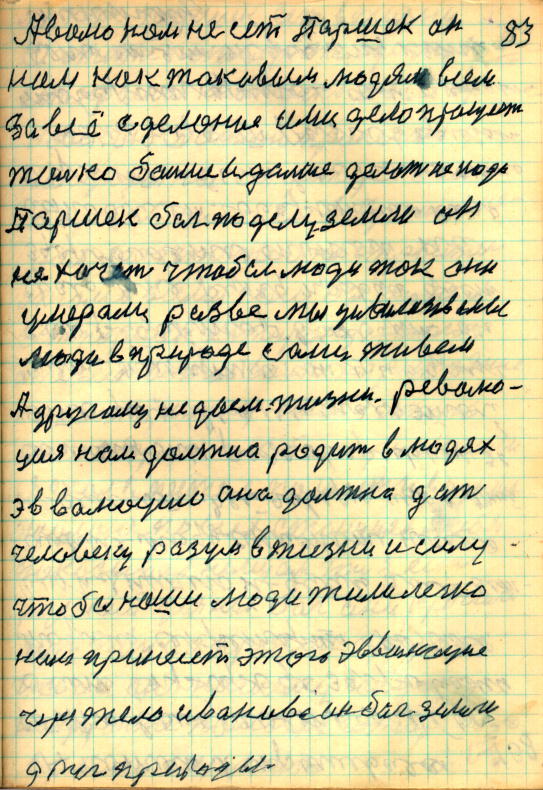 А во мо нам несет Паршек он 83
нам как таковым людям всем
за всё сделоние или дело прощает
толко больше и далше делат не нада
Паршек бог по делу земли он
не хочет чтобы люди так они
умерали разве мы
люди в природе сами живем
А другому не даем жизни. револю-
ция нам должна родит в людях
эвволюцию она должна дат
человеку разум в жизни и силу
чтобы наши люди жили легко
нам принесет этого
тело иванова он бог земли
друг природы.